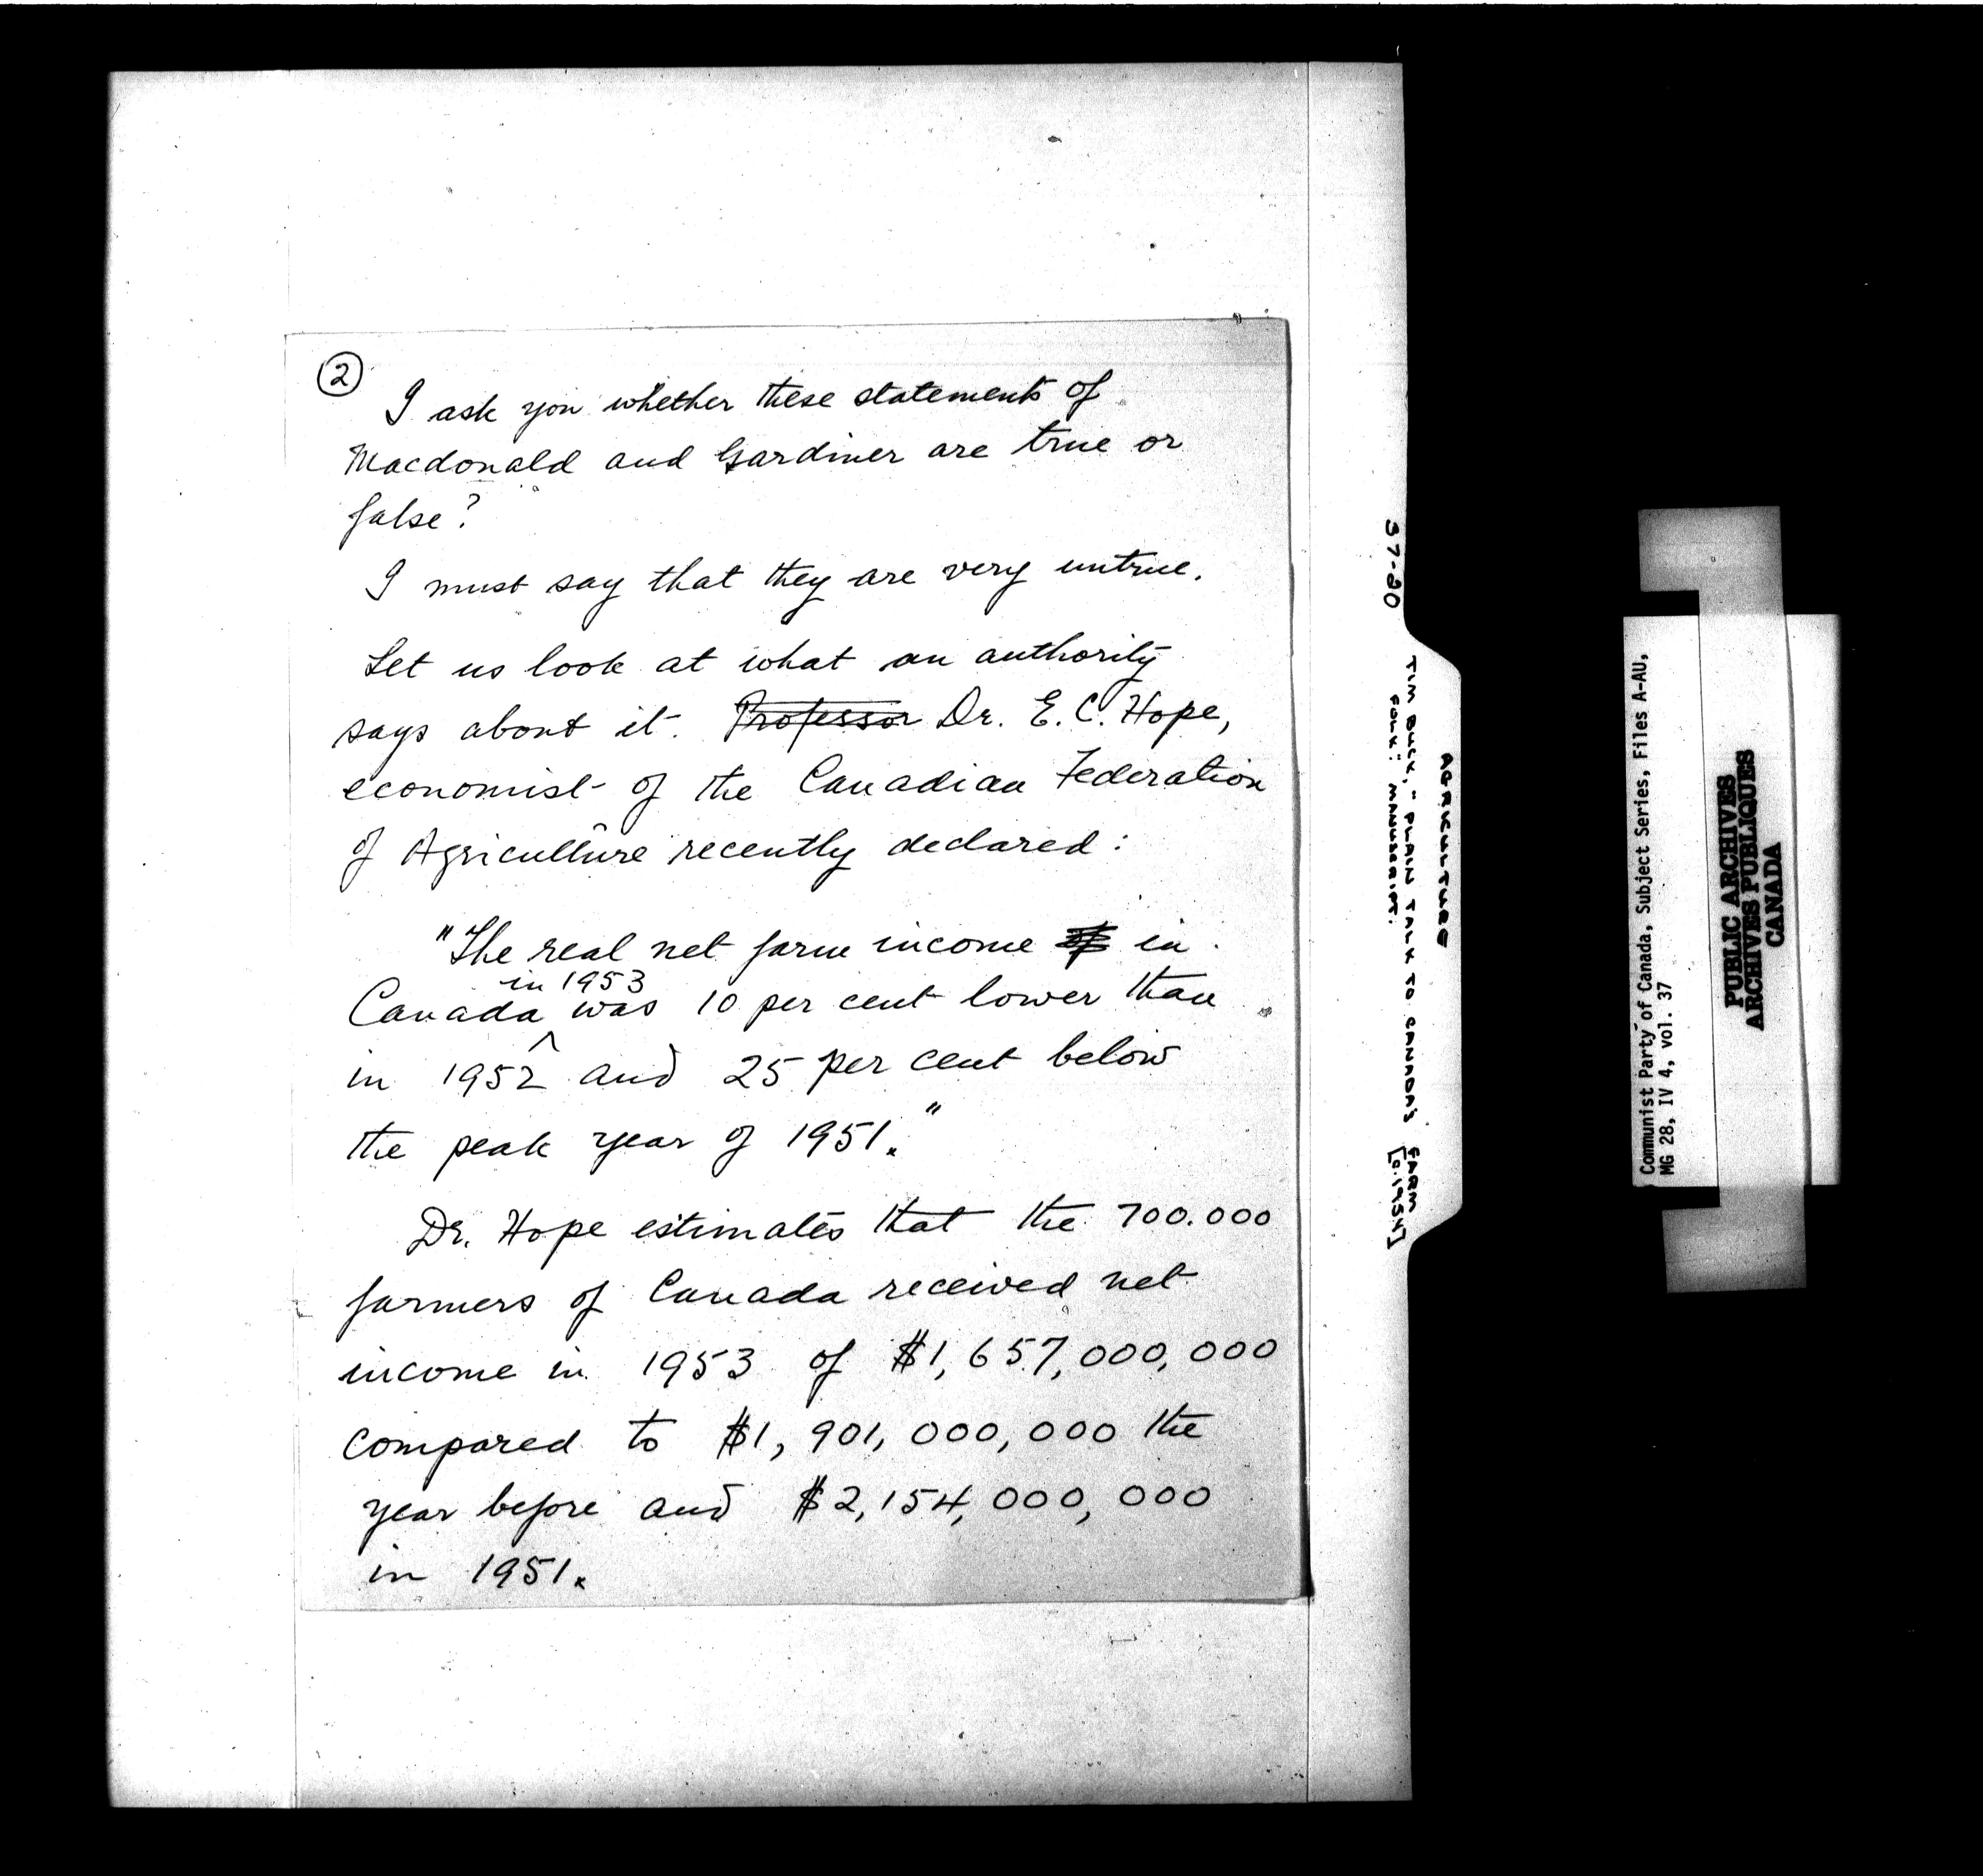 ②
I ask you whether these statements of
Macdonald and Gardiner are true or
false?
I must say that they are very untrue.
Let us look at what an authority
says about it. Professor Dr. E. C. Hope,
economist of the Canadian Federation
of Agriculture recently declared:
"The real net farm income of in
in 1953
Canada ^ was 10 per cent lower than
in 1952 and 25 per cent below
the peak year of 1951."
Dr. Hope estimates that the 700.000
farmers of Canada received net
income in 1953 of $1,657,000,000
compared to $1,901,000,000 the
year before and $2,154,000,000
in 1951.
AGRICULTURE
37-20 TIM BUCK, "PLAIN TALK TO CANADA'S FARM
FOLK: MANUSCRIPT. [c.1954]
Communist Party of Canada, Subject Series, Files A-AU,
MG 28, IV 4, vol. 37
PUBLIC ARCHIVES
ARCHIVES PUBLIQUES
CANADA